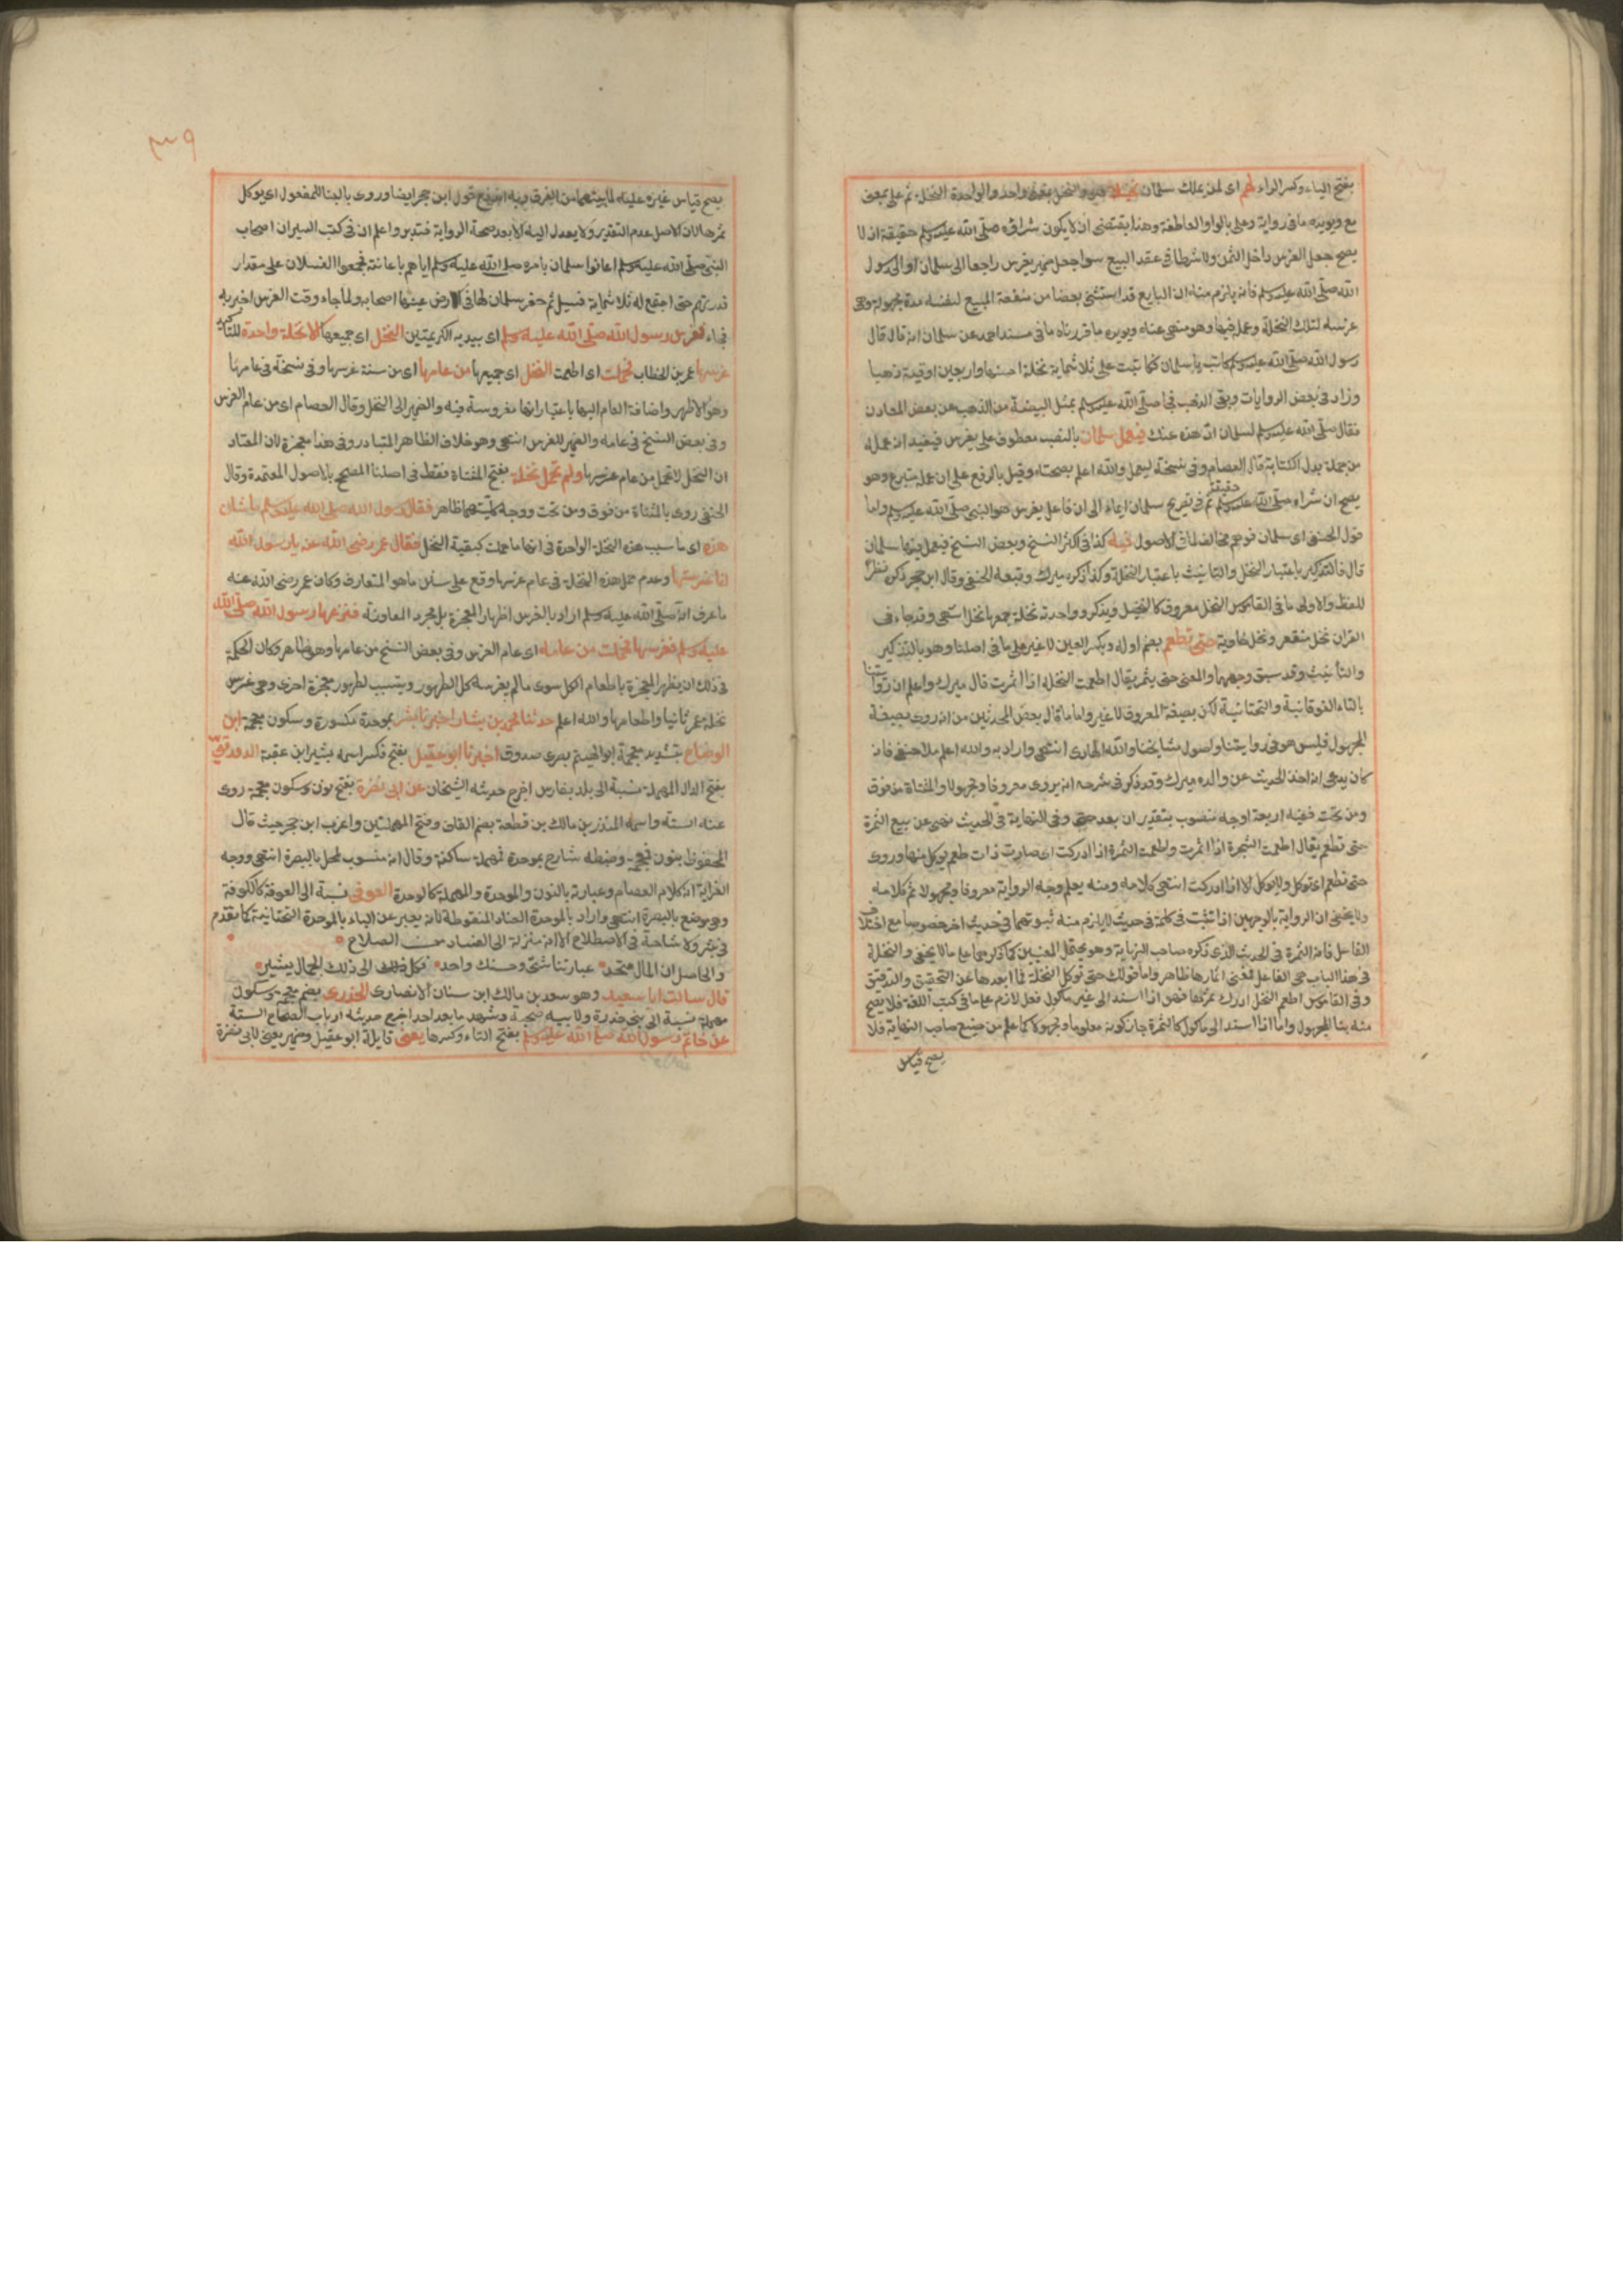 بفتح الياء وكسر الراء لهم اى لمن يملك سلمان نخيلا هو والنخل بمعنى واحد والواحدة النخلة ثم على بمعنى
مع ويؤيده ما فى رواية وعلى بالواو العاطفة وهذا يقتضى ان لا يكون شراؤه صلى الله عليه وسلم حقيقة اذ لا
يصح جعل الغرس داخل الثمن ولا شرطا فى عقد البيع سواء جعل ضمير يغرس راجعا الى سلمان او الى رسول
الله صلى الله عليه وسلم فانه يلزم منه ان البايع قد استثنى بعضا من منفعة المبيع لنفسه مدة مجهولة وهى
غرسه لتلك النخلة وعمله فيها وهو منهى عنه ويؤيد ما قررناه ما فى مسند احمد عن سلمان انه قال قال
رسول الله صلى الله عليه وسلم كاتب يا سلمان فكاتبت على ثلاثماية نخلة احييها واربعين اوقية ذهبا
وزاد فى بعض الروايات وبقى الذهب فجاء صلى الله عليه وسلم بمثل البيضة من الذهب من بعض المعادن
فقال صلى الله عليه وسلم لسلمان اد هذه عنك فيعمل سلمان بالنصب معطوف على يغرس فيفيد ان عمله
من جملة بدل الكتابة قال العصام وفى نسخة ليعمل والله اعلم بصحته وقيل بالرفع على ان عمله متبرع وهو
يصح ان شراءه صلى الله عليه وسلم حقيقة ثم فى تصريح سلمان ايماء الى ان فاعل يغرس هو النبى صلى الله عليه وسلم واما
قول الحنفى اى سلمان فوهم مخالف للاصول فيه كذا فى اكثر النسخ وبعض النسخ فيعمل فيها سلمان
قال فالتذكير باعتبار النخل والتانيث باعتبار النخلة وكذا ذكره ميرك وتبعه الحنفى وقال ابن حجر ذكره نظرا
للفظ والاولى ما فى القاموس النخل معروف كالنخيل ويذكر وواحدته نخلة جمعها نخل انتهى وقد جاء فى
القران نخل منقعر ونخل خاوية حتى تطعم بضم اوله وبكسر العين لا غير على ما فى اصلنا وهو بالتذكير
والتانيث وقد سبق وجهها والمعنى حتى يثمر يقال اطعمت النخلة اذا اثمرت قال ميرك واعلم ان روايتنا
بالتاء الفوقانية والتحتانية لكن بصيغة المعروف لا غير واما ما قال بعض المحدثين من انه روى بصيغة
المجهول فليس هو فى روايتنا واصول مشايخنا والله الهادى انتهى واراد به والله اعلم ملا حنفى فانه
كان يدعى انه اخذ الحديث عن والده ميرك وقد ذكر فى شرحه انه يروى معروفا ومجهولا والمثناة من فوق
ومن تحت ففيه اربعة اوجه منصوب بتقدير ان بعد حتى وفى النهاية فى الحديث نهى عن بيع الثمرة
حتى تطعم يقال اطعمت الشجرة اذا اثمرت واطعمت الثمرة اذا ادركت اى صارت ذات طعم يؤكل منها وروى
حتى تطعم اى تؤكل ولا تؤكل الا اذا ادركت انتهى كلامه ومنه يعلم وجه الرواية معروفا ومجهولا ثم كلامه
ولا يخفى ان الرواية بالوجهين اذا ثبتت فى كلمة فى حديث لا يلزم منه ثبوتهما فى حديث اخر خصوصا مع اختلاف
الفاعل فانه الثمرة فى الحديث الذى ذكره صاحب النهاية وهو يحتمل المعنيين كما ذكرهما على ما لا يخفى والنخلة
فى هذا الباب هى الفاعل فمعنى اثمارها ظاهر واما قولك حتى تؤكل النخلة فما ابعدها عن التحقيق والتدقيق
وفى القاموس اطعم النخل ادرك ثمرها فهى اذا اسند الى غير ماكول فعل لازم على ما فى كتب اللغة فلا يصح
منه بناء المجهول واما اذا اسند الى ماكول كالثمرة جاز كونه معلوما ومجهولا كما علم من صنيع صاحب النهاية فلا
يصح قياس
٣٣٩
يصح قياس غيره عليه لما بينهما من الفرق وبه اندفع قول ابن حجر ايضا وروى بالبناء للمفعول اى يوكل
ثمرها لان الاصل عدم التقدير ولا يعدل اليه الا بعد صحة الرواية فتدبر واعلم ان فى كتب السير ان اصحاب
النبى صلى الله عليه وسلم اعانوا سلمان بامره صلى الله عليه وسلم اياهم باعانته فجمعوا الفسلان على مقدار
قدرتهم حتى اجتمع له ثلاثماية فسيل ثم حفر سلمان لها فى ارض عينها اصحابه ولما جاء وقت الغرس اخبر به
فجاء فغرس رسول الله صلى الله عليه وسلم اى بيديه الكريمتين النخل اى جميعها الا نخلة واحدة للتاكيد
غرسها عمر بن الخطاب فحملت اى اطعمت النخل اى جميعها من عامها اى من سنة غرسها وفى نسخة فى عامها
وهو الاظهر واضافة العام اليها باعتبار انها مغروسة فيه والضمير الى النخل وقال العصام اى من عام الغرس
وفى بعض النسخ فى عامه والضمير للغرس انتهى وهو خلاف الظاهر المتبادر وفى هذا معجزة لان المعتاد
ان النخل لا تحمل من عام غرسها ولم تحمل نخلة بفتح المثناة فقط فى اصلنا المصحح بالاصول المعتمدة وقال
الحنفى روى بالمثناة من فوق ومن تحت ووجه كليهما ظاهر فقال رسول الله صلى الله عليه وسلم ما شان
هذه اى ما سبب هذه النخلة الواحدة فى انها ما حملت كبقية النخل فقال عمر رضى الله عنه يا رسول الله
انا غرستها وعدم حمل هذه النخلة فى عام غرسها وقع على سنن ما هو المتعارف وكان عمر رضى الله عنه
ما عرف انه صلى الله عليه وسلم اراد بالغرس اظهار المعجزة بل مجرد المعاونة فنزعها رسول الله صلى الله
عليه وسلم فغرسها فحملت من عامه اى عام الغرس وفى بعض النسخ من عامها وهو ظاهر وكان الحكمة
فى ذلك ان يظهر المعجزة باطعام الكل سوى ما لم يغرسه كل الظهور ويتسبب لظهور معجزة اخرى وهى غرس
نخلة عمر ثانيا واطعامها والله اعلم حدثنا محمد بن بشار اخبرنا بشر بموحدة مكسورة وسكون معجمة ابن
الوضاح بتشديد معجمة ابو الهيثم بصرى صدوق اخبرنا ابو عقيل بفتح فكسر اسمه بشير ابن عقبة الدورقى
بفتح الدال المهملة نسبة الى بلد بفارس اخرج حديثه الشيخان عن ابى نضرة بفتح نون وسكون معجمة روى
عنه الستة واسمه المنذر بن مالك بن قطعة بضم القاف وفتح المهملتين واغرب ابن حجر حيث قال
المحفوظ بنون فمعجمة وضبطه شارح بموحدة فمهملة ساكنة وقال انه منسوب لمحل بالبصرة انتهى ووجه
الغرابة ان كلام العصام وعبارته بالنون والموحدة والمهملة كالوحدة العوفى نسبة الى العوقة كالكوفة
وهى موضع بالبصرة انتهى واراد بالموحدة الضاد المنقوطة فانه يعبر عن الباء بالموحدة التحتانية كما تقدم
فى بشر ولا مشاحة فى الاصطلاح الا انه منزلة الى الفساد من الصلاح
والحاصل ان المال متحد عباراتنا شتى وحسنك واحد فكل الى ذلك الجمال يشير
قال سالت ابا سعيد وهو سعد بن مالك ابن سنان الانصارى الخدرى بضم معجمة وسكون
مهملة نسبة الى بنى خدرة ولابيه صحبة وشهد ما بعد احد اخرج حديثه ارباب الصحاح الستة
عن خاتم رسول الله صلى الله عليه وسلم بفتح التاء وكسرها يعنى قايله ابو عقيل وضمير يعنى لابى نضرة